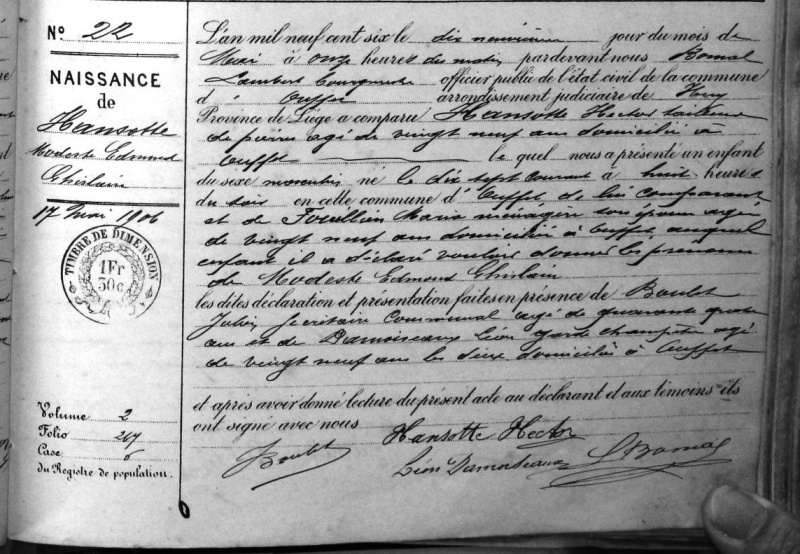 N° 22
NAISSANCE
de
Hansotte
Modeste Edmond
Ghislain
17 mai 1906
TIMBRE DE DIMENSION
1Fr
50c
Volume 2
Folio 207
Case 6
du Registre de population.
L'an mil neuf cent six le dix neuvième jour du mois de
Mai à onze heures du matin, pardevant nous Bomal
Lambert bourgmestre officier public de l'état civil de la commune
d' Ouffet arrondissement judiciaire de Huy
Province de Liége a comparu Hansotte Hector tailleur
de pierre agé de vingt neuf ans domicilié à
Ouffet le quel nous a présenté un enfant
du sexe masculin né le dix sept courant à huit heures
du soir en cette commune d' Ouffet, de lui comparant
et de Marie ménagère son épouse agée
de vingt neuf ans domiciliée à Ouffet, auquel
enfant il a déclaré vouloir donner les prénoms
de Modeste Edmond Ghislain
les dites déclaration et présentation faites en présence de Boulet
Jules, Secrétaire Communal agé de quarante quatre
ans et de Damoiseaux Léon garde champêtre agé
de vingt neuf ans les deux domiciliés à Ouffet
et après avoir donné lecture du présent acte au déclarant et aux témoins ils
ont signé avec nous
Hansotte Hector
Boulet
Léon Damoiseaux
LBomal